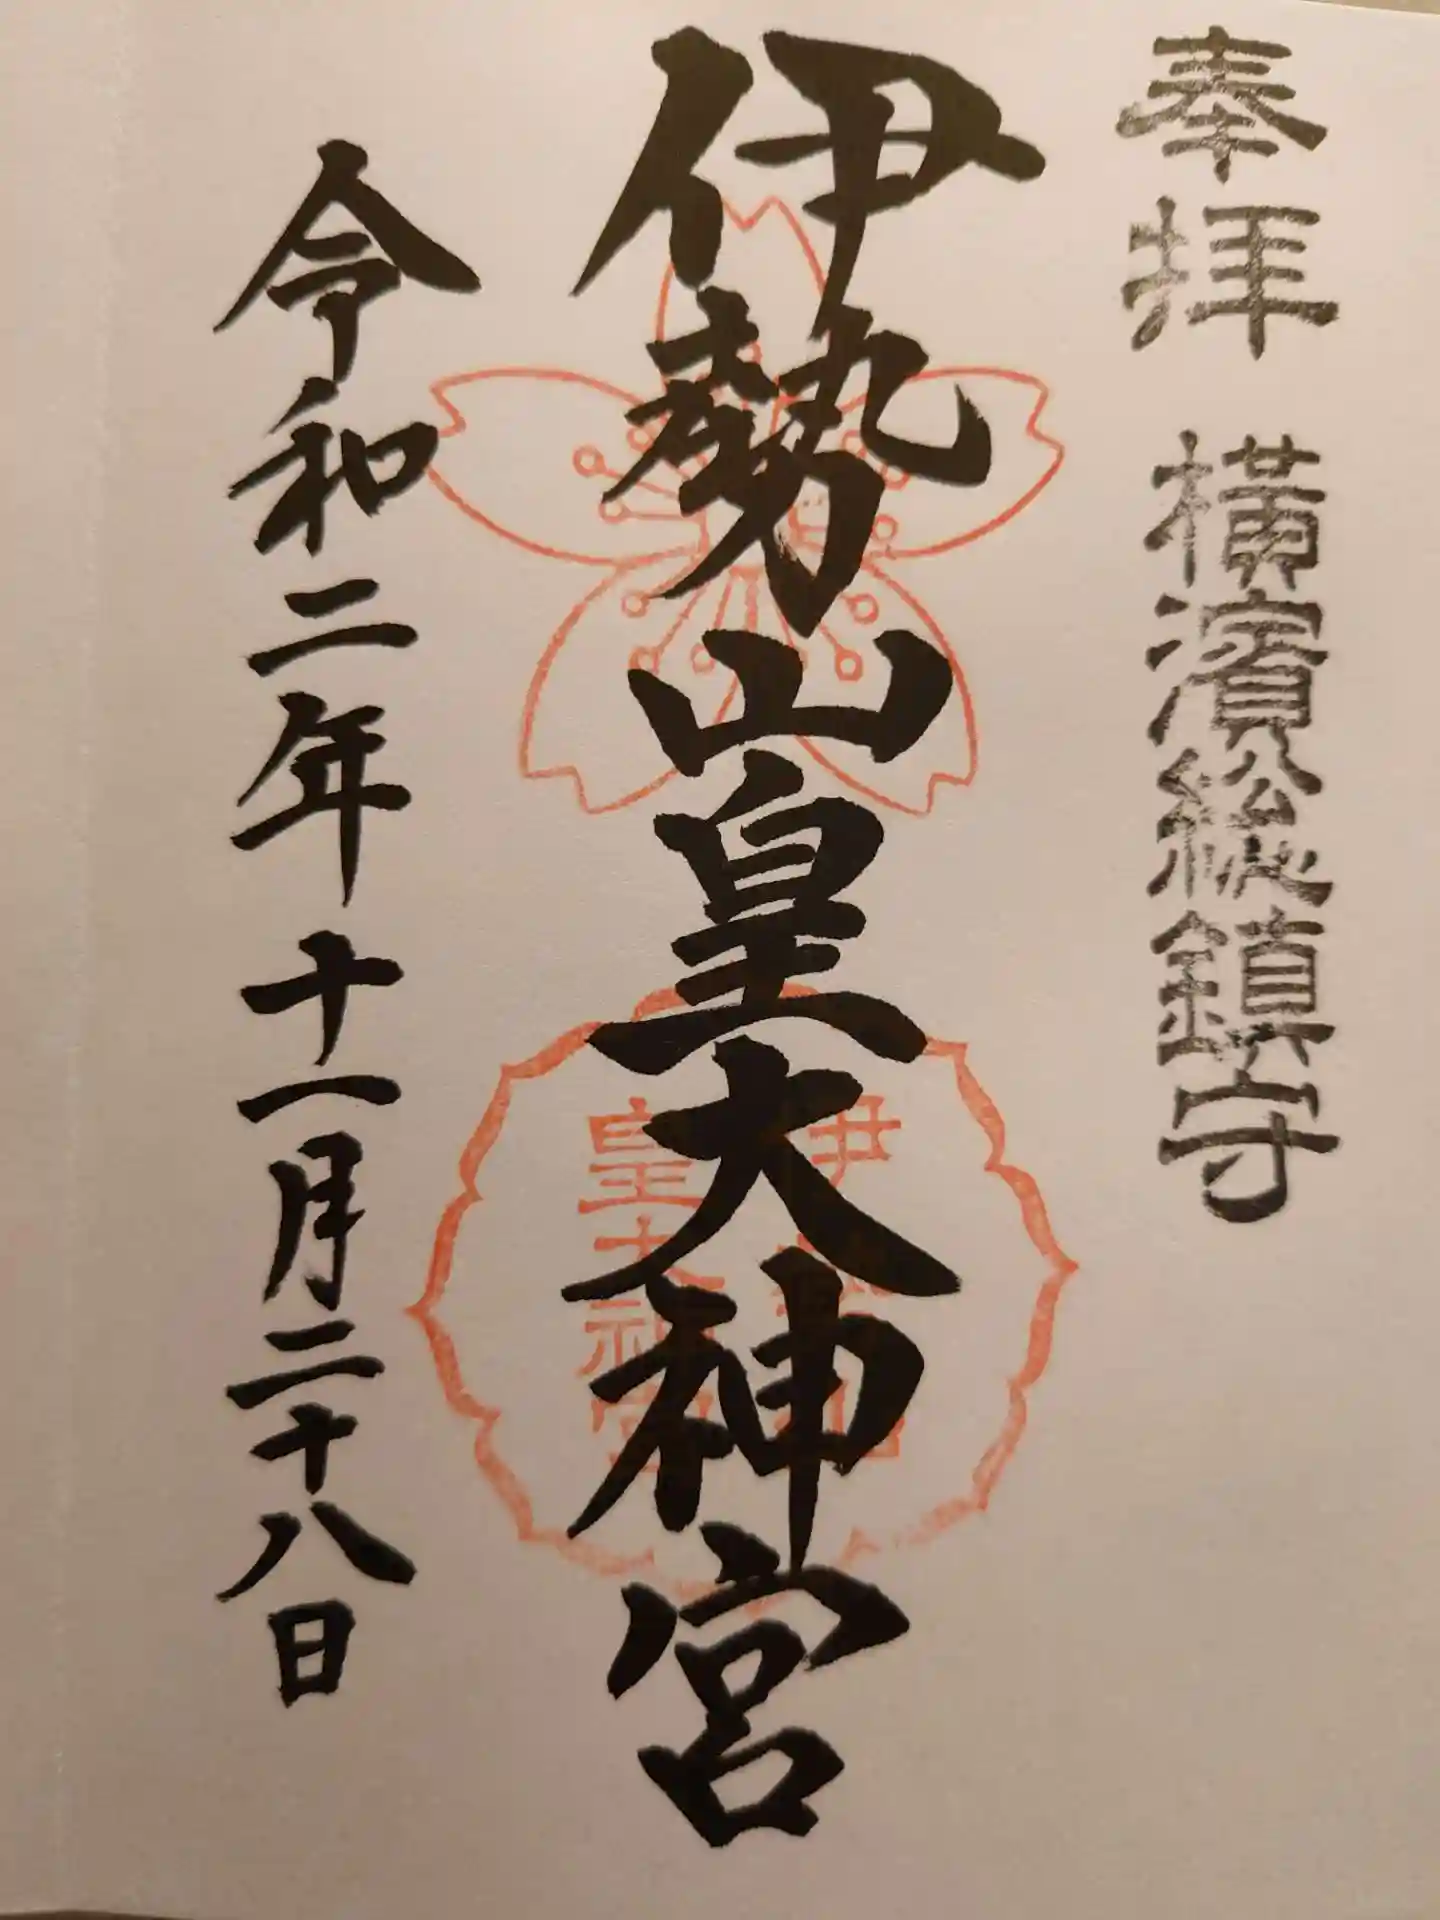 奉拝　横濱総鎮守
伊勢山皇大神宮
伊勢山
皇大神宮
令和二年十一月二十八日